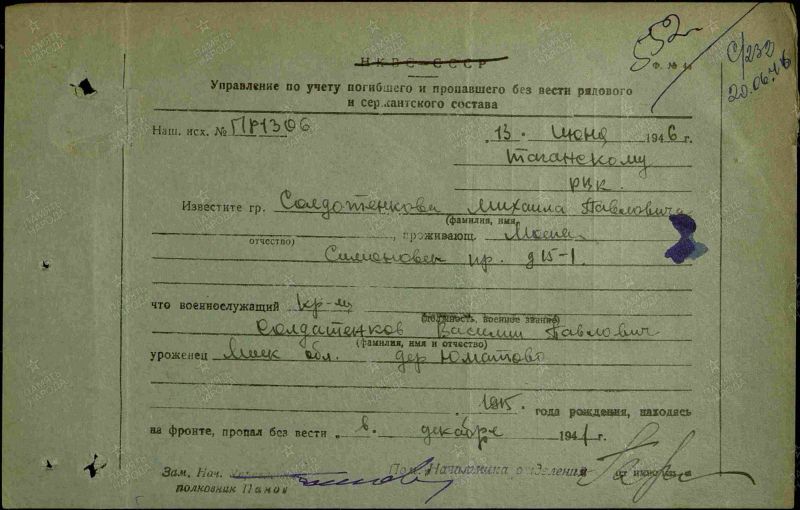 552
С/232
20.06.46
НКВС-СССР
Ф. № 4
Управление по учету погибшего и пропавшего без вести рядового
и сержантского состава
Наш. исх. № ПР1306
„13. июня 1946 г.
Таганскому
РВК.
Известите гр. Солдатенкова Михаила Павловича
(фамилия, имя,
отчество) , проживающ.
Симоновск пр. д 15-1.
что военнослужащий кр-ец
(должность, военное звание)
Солдатенков Василий Павлович
(фамилия, имя и отчество)
уроженец Моск обл. дер Юматово
1915. года рождения, находясь
на фронте, пропал без вести „ в. декабре 1941 г.
Зам. Нач. Пом. Начальника отделения
полковник Панов
ПАМЯТЬ НАРОДА